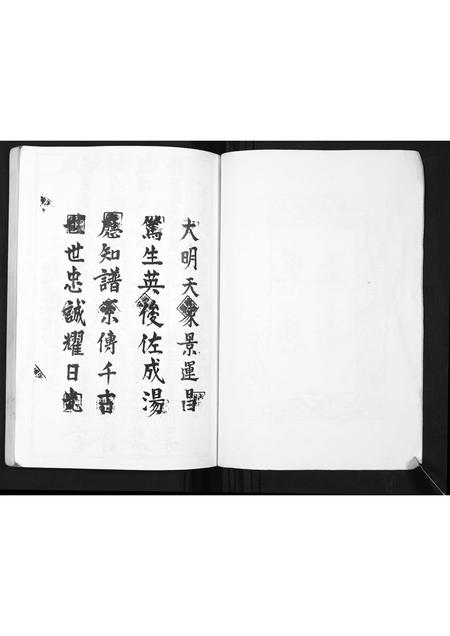 大明天象景運昌
篤生英後佐成湯
應知譜系傳千古
世世忠誠耀日光